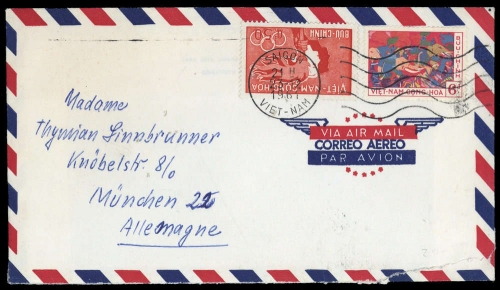 BƯU-CHÍNH
VIỆT-NAM CỘNG-HÒA
BƯU-CHÍNH
VIỆT-NAM CỘNG-HÒA 6đ
SAIGON
VIET-NAM
VIA AIR MAIL
CORREO AEREO
PAR AVION
Madame
Thymian Linnbrunner
Knöbelstr. 8/0
München 22
Allemagne